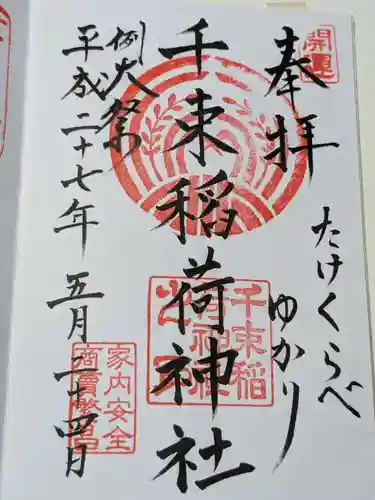 開運
奉拝
たけくらべ
ゆかり
千束稲荷神社
千束稲
荷神社
例大祭
平成二十七年 五月二十四日
家内安全
商賣繁昌